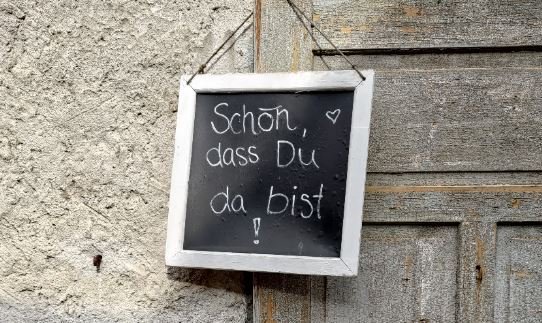 Schön,
dass Du
da bist
!